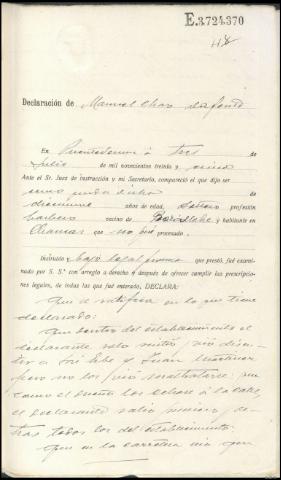 E.3.724.370
48
Declaración de Manuel Chao
En Puentedeume á tres de
Julio de mil novecientos treinta y cinco
Ante el Sr. Juez de instrucción y mi Secretario, compareció el que dijo ser
como queda dicho de
diecinueve años de edad, soltero profesión
barbero vecino de y habitante en
que no fué procesado.
Instruído y bajo legal promesa que prestó, fué examinado
por S. S.ª con arreglo a derecho y después de ofrecer cumplir las prescripciones
legales, de todas las que fué enterado, DECLARA:
Que se ratifica en lo que tiene
declarado:
Que dentro del establecimiento el
declarante solo sintió y vió discutir
a José y Juan Martinez
pero no los vió maltratarse; que
como el dueño los echase á la calle,
el declarante salió tras
todos los del establecimiento:
Que en la carretera vió que